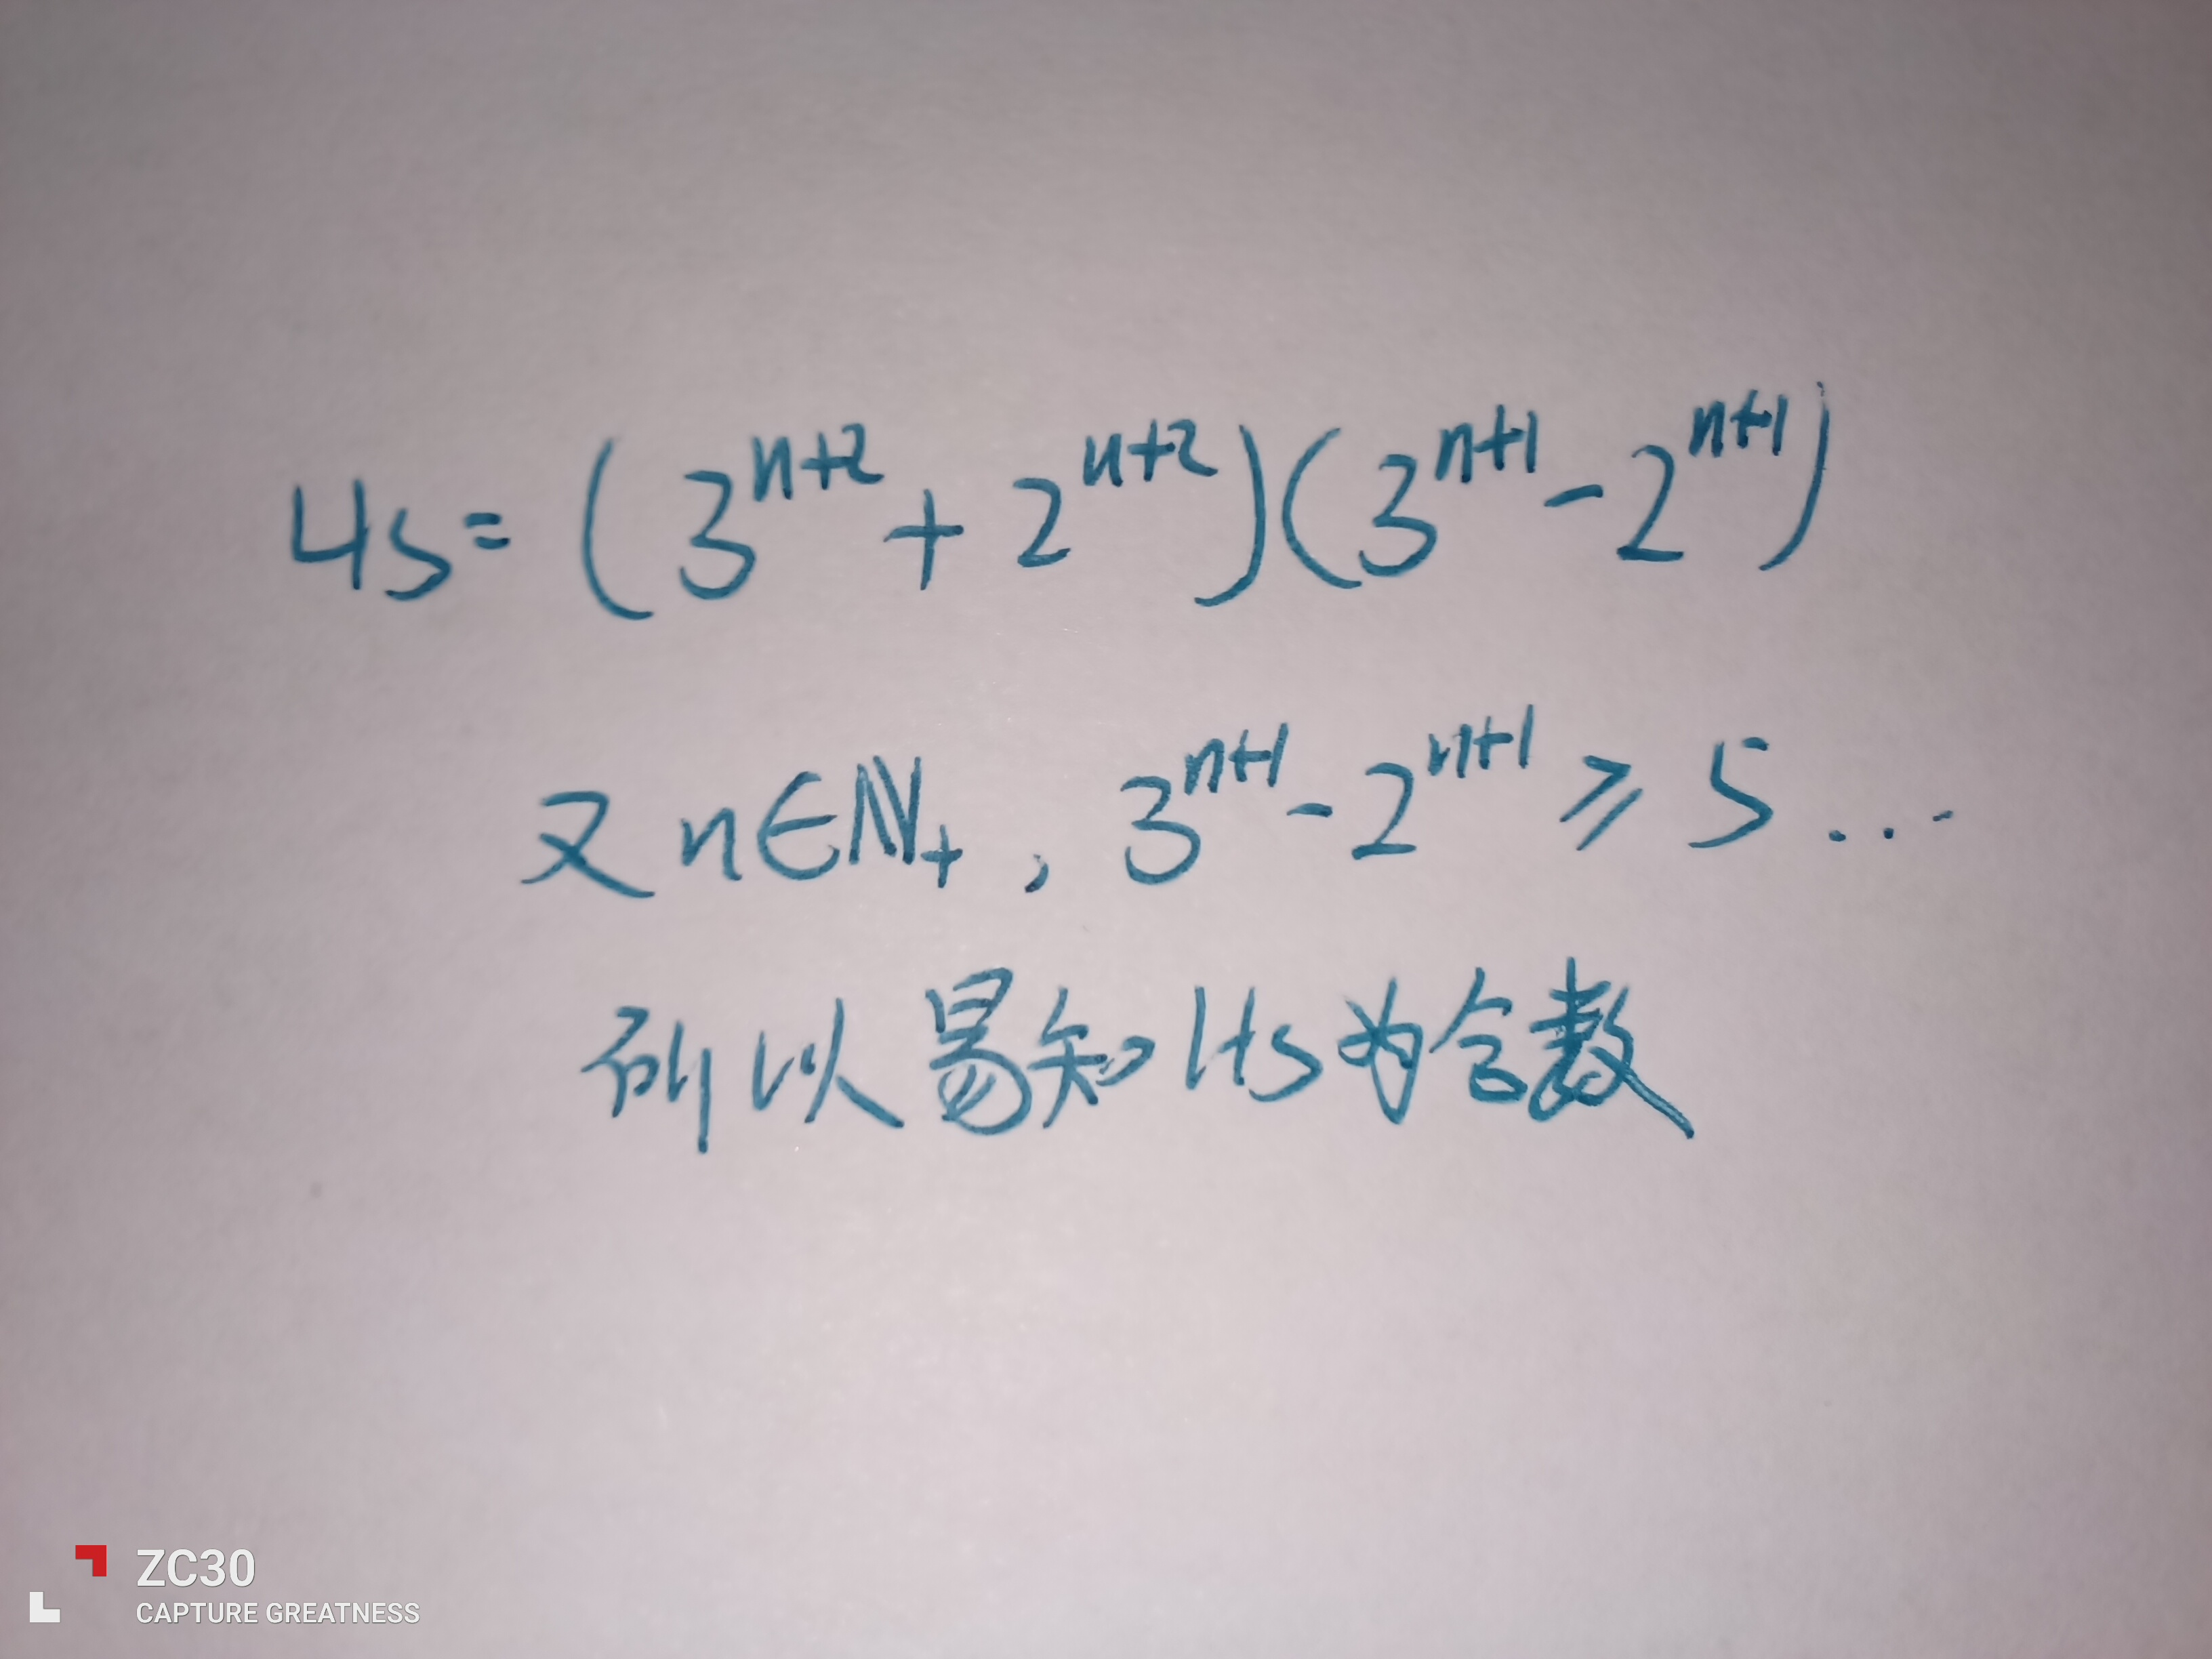 4s=(3^{n+2}+2^{n+2})(3^{n+1}-2^{n+1})
又n∈ℕ₊, 3^{n+1}-2^{n+1}⩾5...
所以易知4s为合数
ZC30
CAPTURE GREATNESS